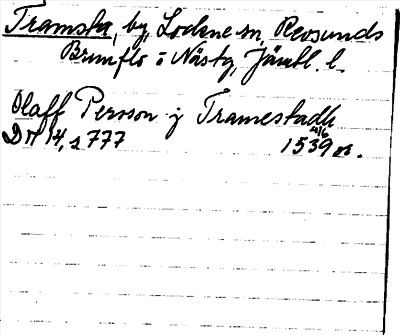 Tramsta, by, Lockne sn, Revsunds
Brunflo o NäsTg, Jämtl. l.
Olaff Persson j Tramestadh
DN 14, s 777 1539 4/6 or.